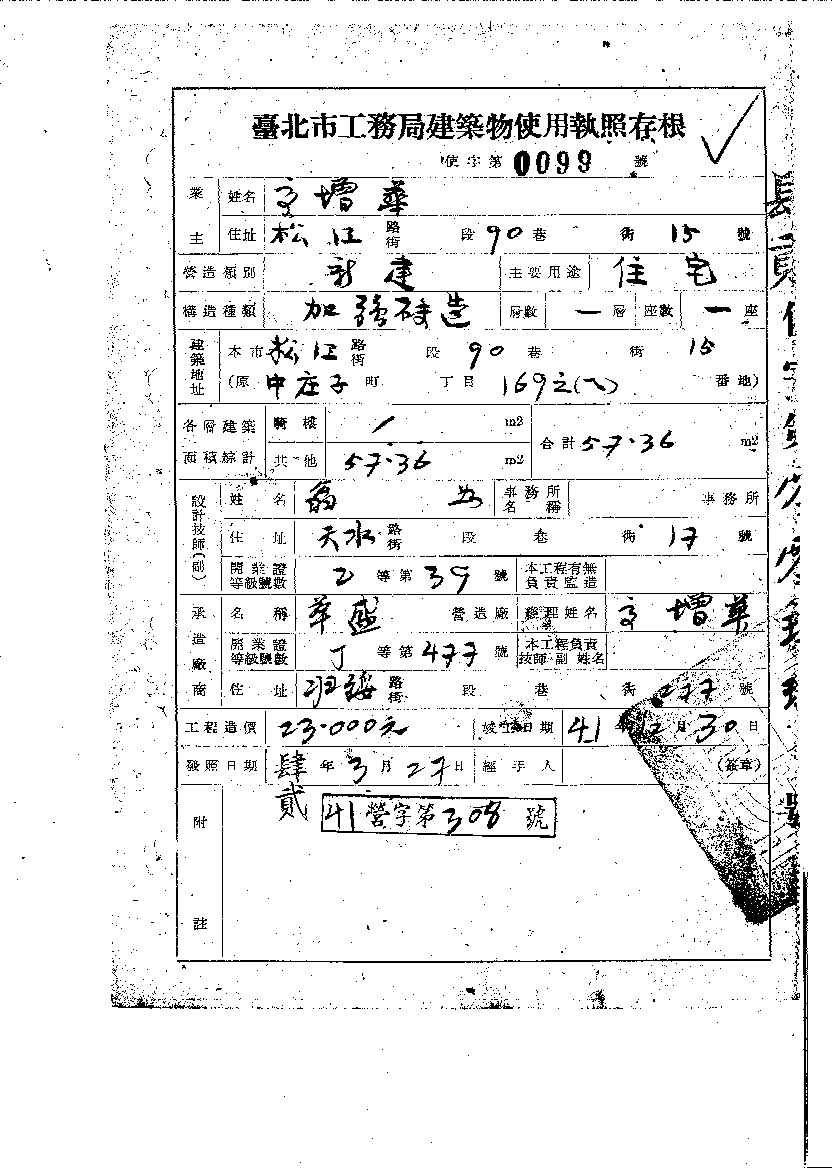 臺北市工務局建築物使用執照存根
使字第 0099 號
業主 姓名 增華
住址 松江 路街 段 90 巷 街 15 號
營造類別 新建 主要用途 住宅
構造種類 加強磚造 層數 一層 座數 一座
建築地址 本市 松江 路街 段 90 巷 街 15
(原 中庄子 町 丁目 169之(八) 番地)
各層建築面積綜計 騎樓 / m2 合計 57.36 m2
其他 57.36 m2
設計技師(副) 姓名 翁 事務所名稱 事務所
住址 天水 路街 段 巷 街 17 號
開業證等級號數 乙 等第 39 號 本工程有無負責監造
承造廠商 名稱 華盛 營造廠 經理姓名 增華
開業證等級號數 丁 等第 477 號 本工程負責技師·副 姓名
住址 路街 段 巷 街 277 號
工程造價 23.000元 竣工日期 41年12月30日
發照日期 肆貳年3月27日 經手人 (簽章)
附註 41營字第308號